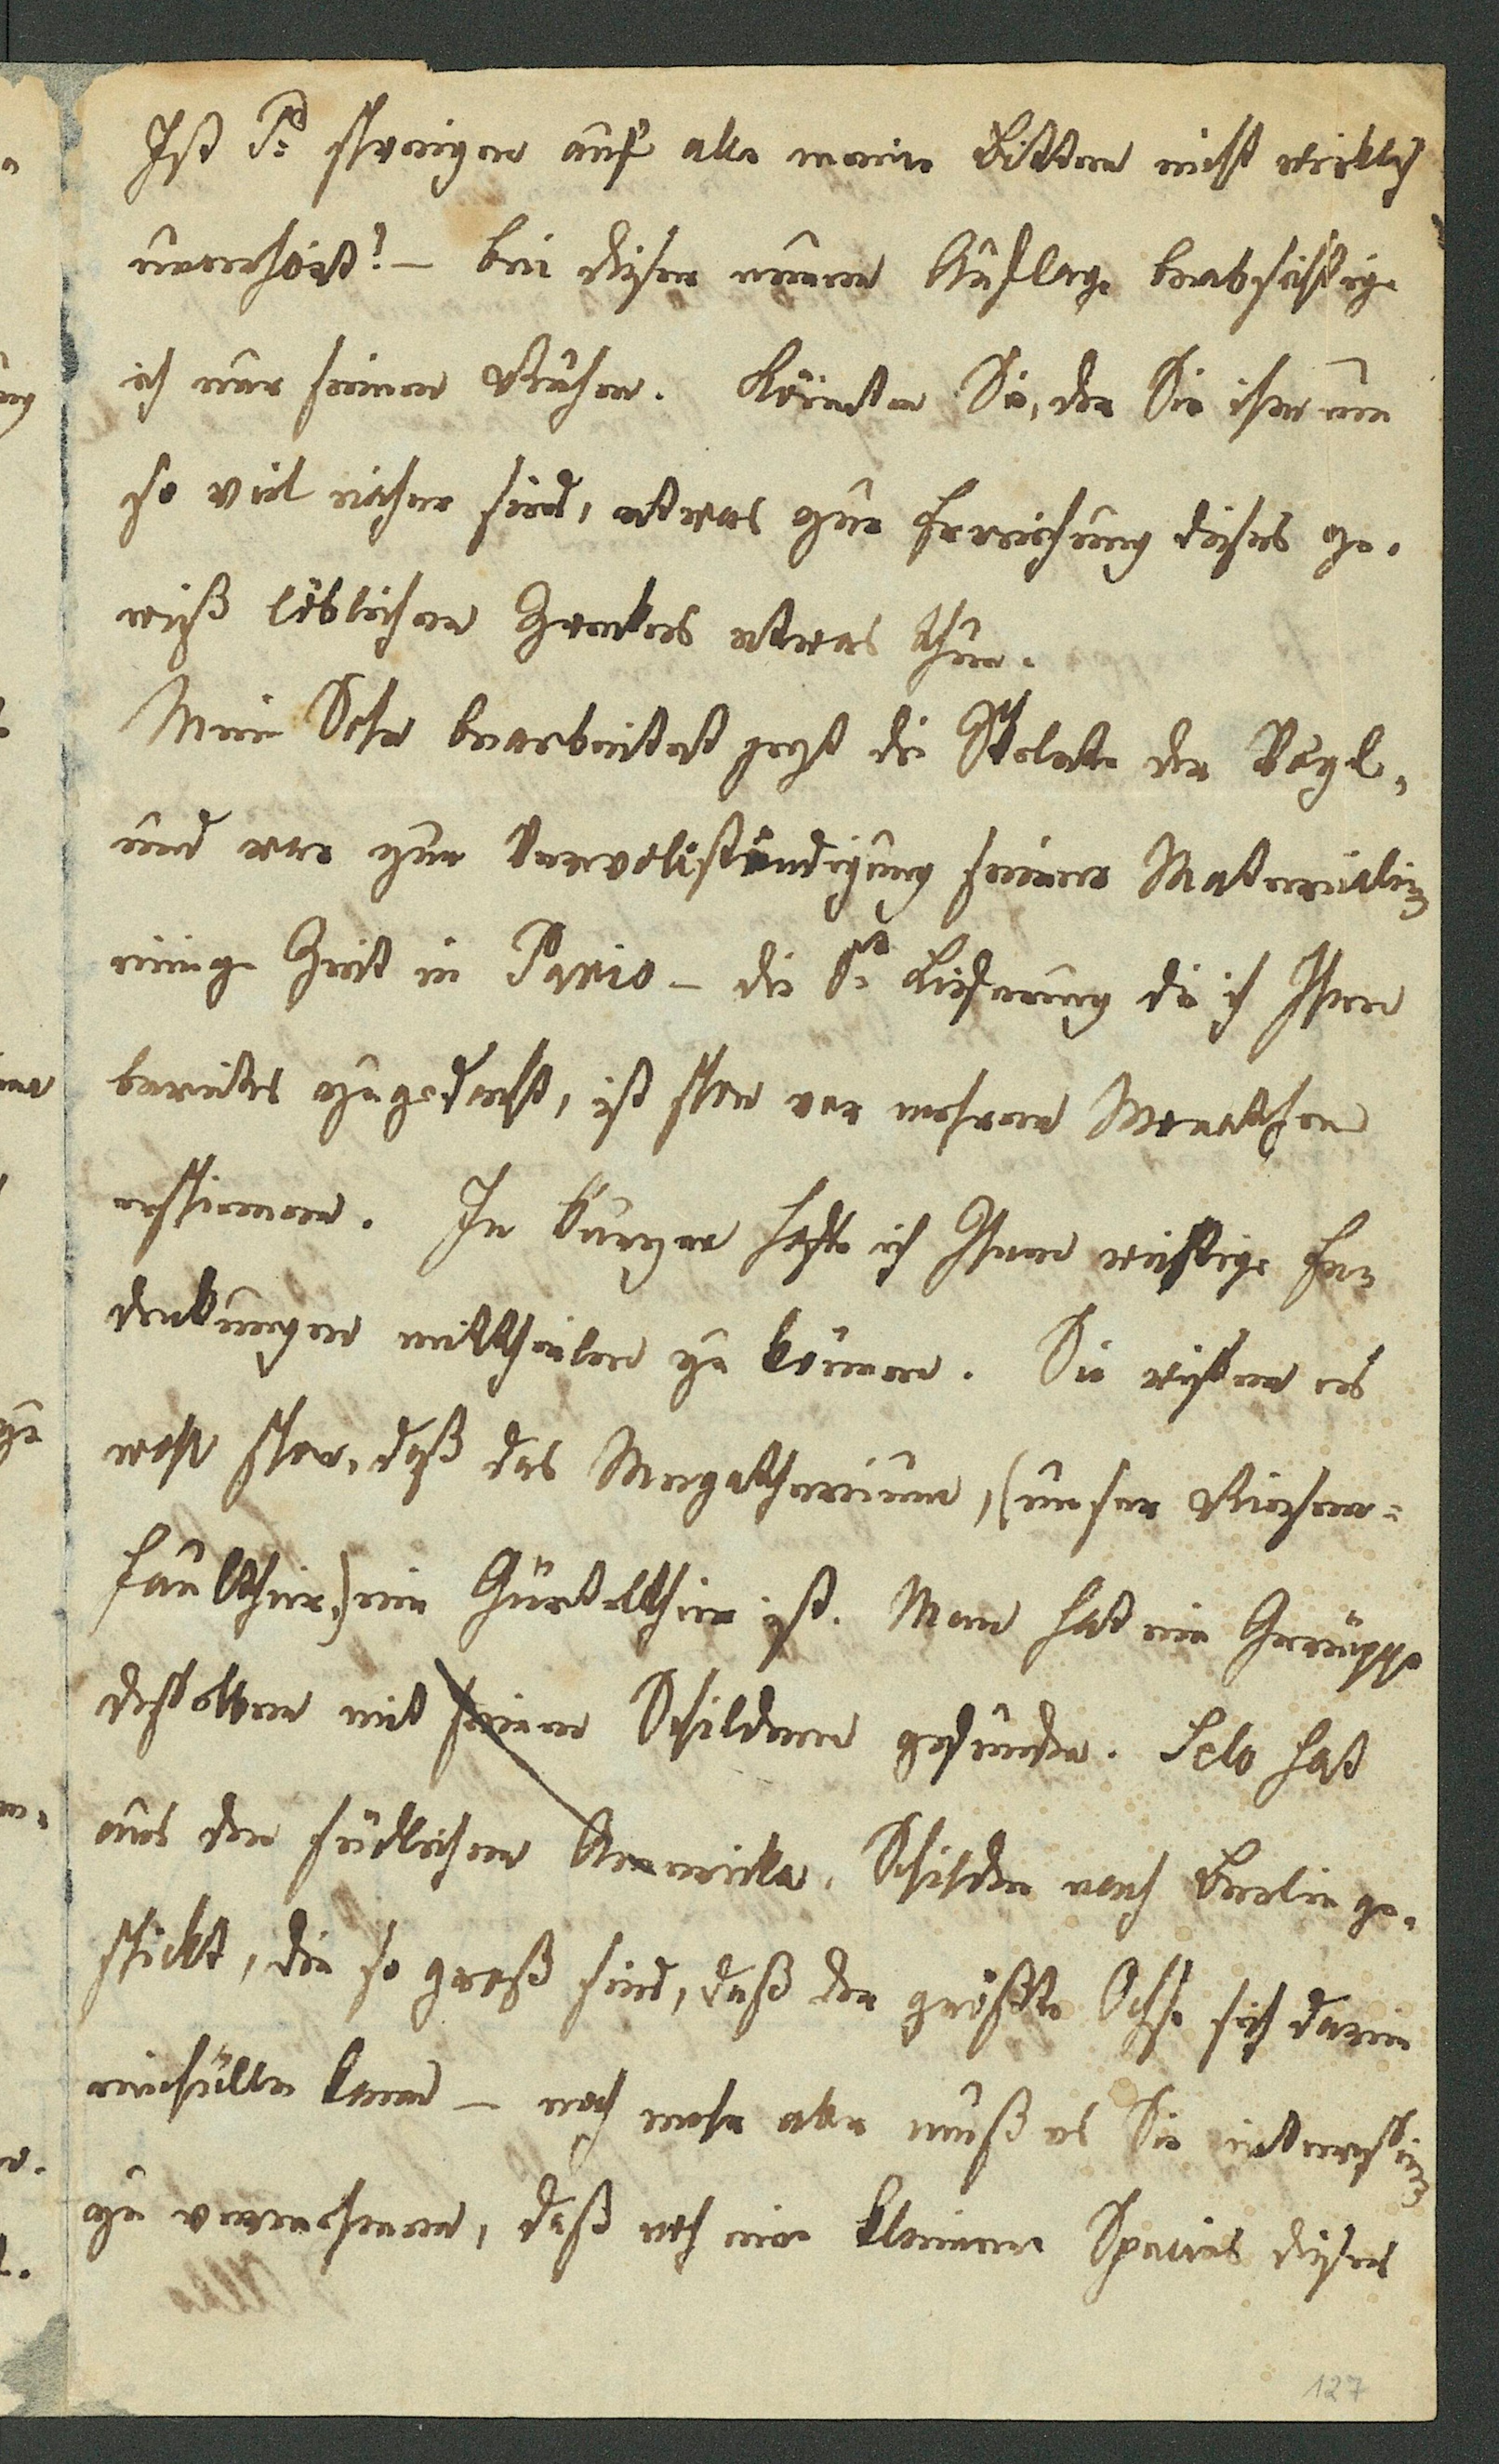 Ist P.s schweigen auf alle meine Bitten nicht wirklich
unerhört? – bei dieser neuen Auflage beabsichtige
ich nur seinen Ruhm. Könnten Sie, der Sie ihm um
so viel näher sind, etwas zur Erreichung dieses ge-
wiß löblichen Zweckes etwas thun.
Mein Sohn bearbeitet jezt die Skelette der Vögel,
und war zur Vervollständigung seiner Materialien
einige Zeit in Paris – die Lieferung die ich Ihnen
bereites zugedacht, ist schon vor mehren Monathen
erschienen. In kurzer hoffe ich Ihnen wichtige En-
deckungen mittheilen zu können. Sie wissen es
wohl schon, daß das Megatherium, (unser Riesen-
faulthier,) ein Gürtelthier ist. Man hat ein Gerüppe
desselben mit seinen Schildern gefunden. Selo hat
aus den südlichen Amerika, Schilder nach Berlin ge-
schickt, die so groß sind, daß der größte Ochse sich darin
einhüllen kann – noch mehr aber muß es Sie interessiren
zu vernehmen, daß noch eine kleinere Species dieses
127